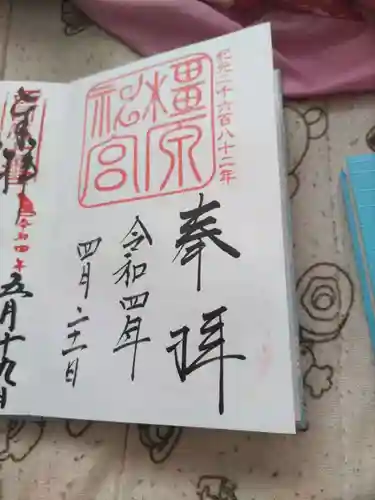 紀元二千六百八十二年
橿原
神宮
奉拝
令和四年
四月二十一日
令和四年
五月十九日